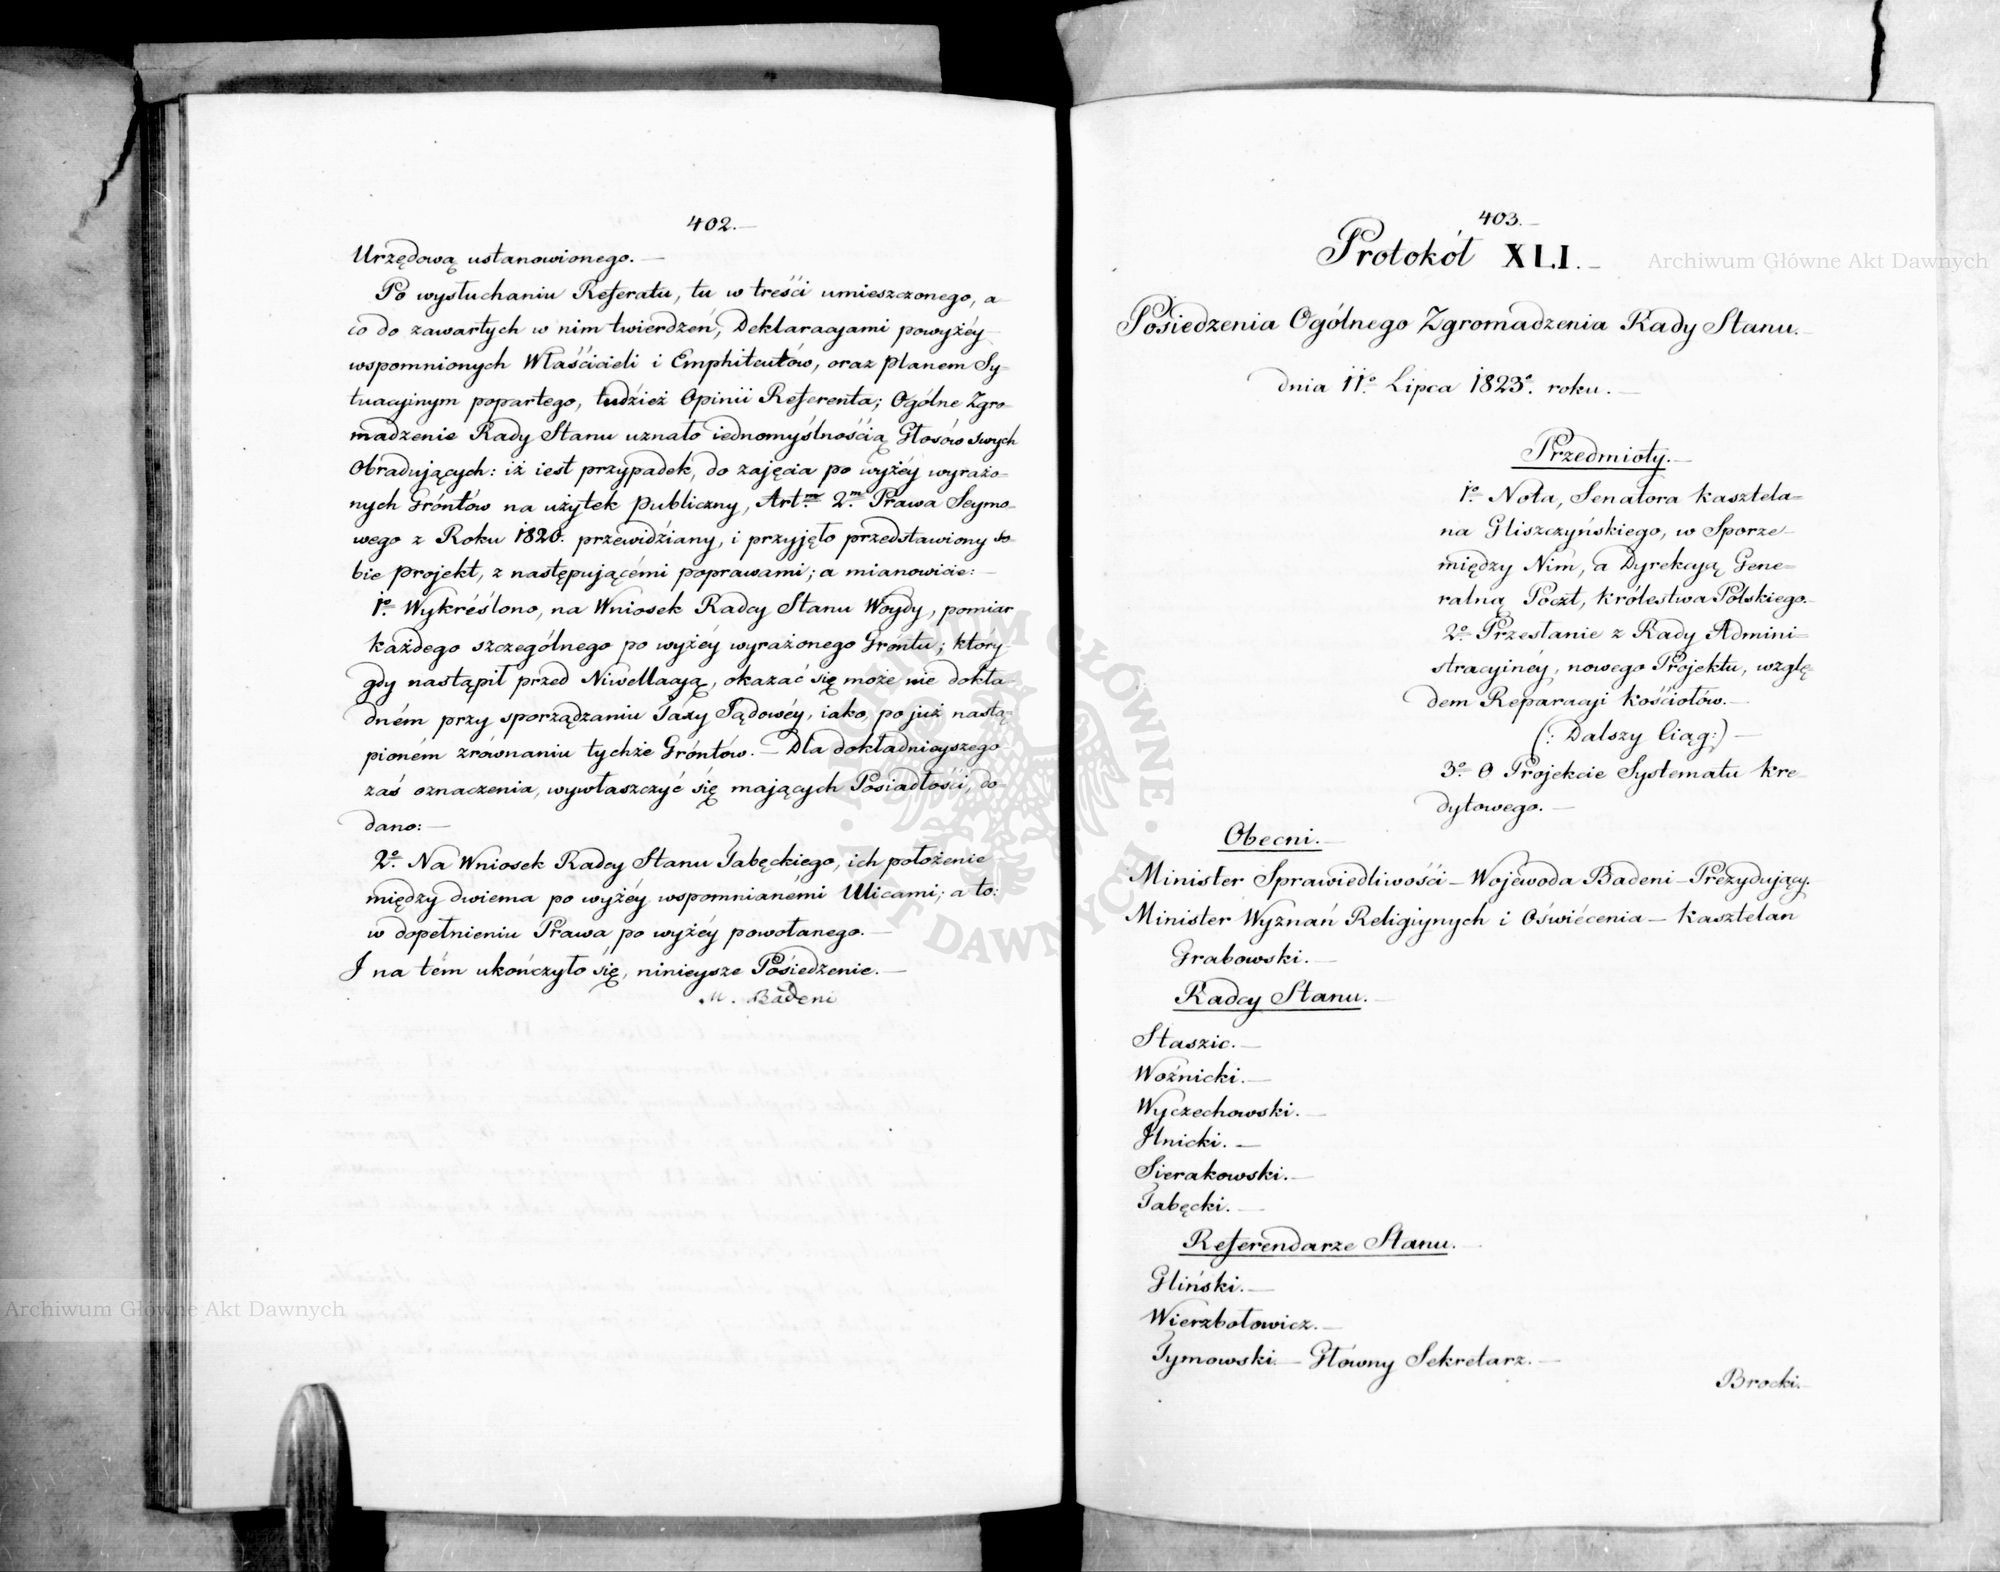 402.
Urzędową ustanowionego.
Po wysłuchaniu Referatu, tu w treści umieszczonego, a
co do zawartych w nim twierdzeń, Deklaracyami powyżéy
wspomnionych Właścicieli i Emphiteutów, oraz Planem Sy=
tuacyinym popartego, tudzież Opinii Referenta; Ogólne Zgro=
madzenie Rady Stanu uznało iednomyślnością Głosów swych
Obradujących: iż iest przypadek, do zajęcia po wyżéy wyrażo=
nych Gróntów na użytek Publiczny, Art.m 2.m Prawa Seymo=
wego z Roku 1820. przewidziany, i przyjęło przedstawiony so=
bie Projekt, z następującémi poprawami; a mianowicie:
1o. Wykréślono, na Wniosek Radcy Stanu Woydy, pomiar
każdego szczególnego po wyżéy wyrażonego Gróntu; który
gdy nastąpił przed Niwellacyą, okazać się może nie dokła=
dném przy sporządzaniu Taxy Sądowéy, iako, po już nastą=
pioném zrównaniu tychże Gróntów. – Dla dokładnieyszego
zaś oznaczenia, wywłaszczyć się mających Posiadłości, do=
dano:
2o. Na Wniosek Radcy Stanu Tabęckiego, ich położenie
między dwiema po wyżéy wspomnianémi Ulicami; a to:
w dopełnieniu Prawa po wyżéy powołanego.
I na tém ukończyło się, ninieysze Posiedzenie.
M. Badeni
403.
Protokół XLI.
Posiedzenia Ogólnego Zgromadzenia Rady Stanu.
dnia 11o. Lipca 1823o. roku.
Przedmioty.
1o. Nota, Senatora Kasztela=
na Gliszczyńskiego, w Sporze
między Nim, a Dyrekcyą Gene=
ralną Poczt, Królestwa Polskiego.
2o. Przesłanie z Rady Admini=
stracyinéy, nowego Projektu, wzglę=
dem Reparacyi Kościołów.
(: Dalszy Ciąg:)
3o. O Projekcie Systematu Kre=
dytowego.
Obecni.
Minister Sprawiedliwości – Wojewoda Badeni – Prezydujący.
Minister Wyznań Religiynych i Oświécenia – Kasztelan
Grabowski.
Radcy Stanu.
Staszic.
Woźnicki.
Wyczechowski.
Ilnicki.
Sierakowski.
Tabęcki.
Referendarze Stanu.
Gliński.
Wierzbołowicz.
Tymowski – Główny Sekretarz.
Brocki.
Archiwum Główne Akt Dawnych
Archiwum Główne Akt Dawnych
ARCHIWUM GŁÓWNE AKT DAWNYCH